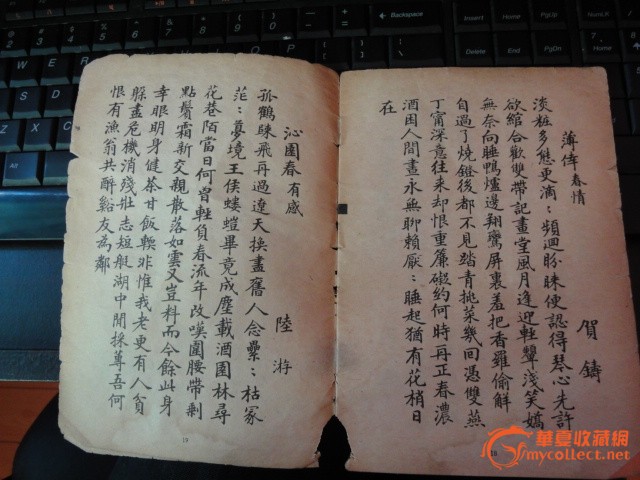 薄倖 春情
賀鑄
淡粧多態更滴：頻迴盼睞便認得琴心先許
欲綰合歡雙帶記畫堂風月逢迎輕顰淺笑嬌
無奈向睡鴨爐邊翔鸞屏裏羞把香羅偷解
自過了燒鐙後都不見踏青挑菜幾回憑雙燕
丁甯深意往來却恨重簾礙約何時再正春濃
酒困人間晝永無聊賴厭：睡起猶有花梢日
在
18
沁園春 有感
陸游
孤鶴歸飛再過遼天換盡舊人念纍：枯冢
茫：夢境王侯螻螘畢竟成塵載酒園林尋
花巷陌當日何曾輕負春流年改嘆圍腰帶剩
點鬢霜新交親散落如雲又豈料而今餘此身
幸眼明身健茶甘飯輭非惟我老更有人貧
躲盡危機消殘壯志短艇湖中閒採蓴吾何
恨有漁翁共醉谿友為鄰
19
Backspace
Insert
Home
PgUp
NumLK
Delete
End
PgDn
華夏收藏網
mycollect.net